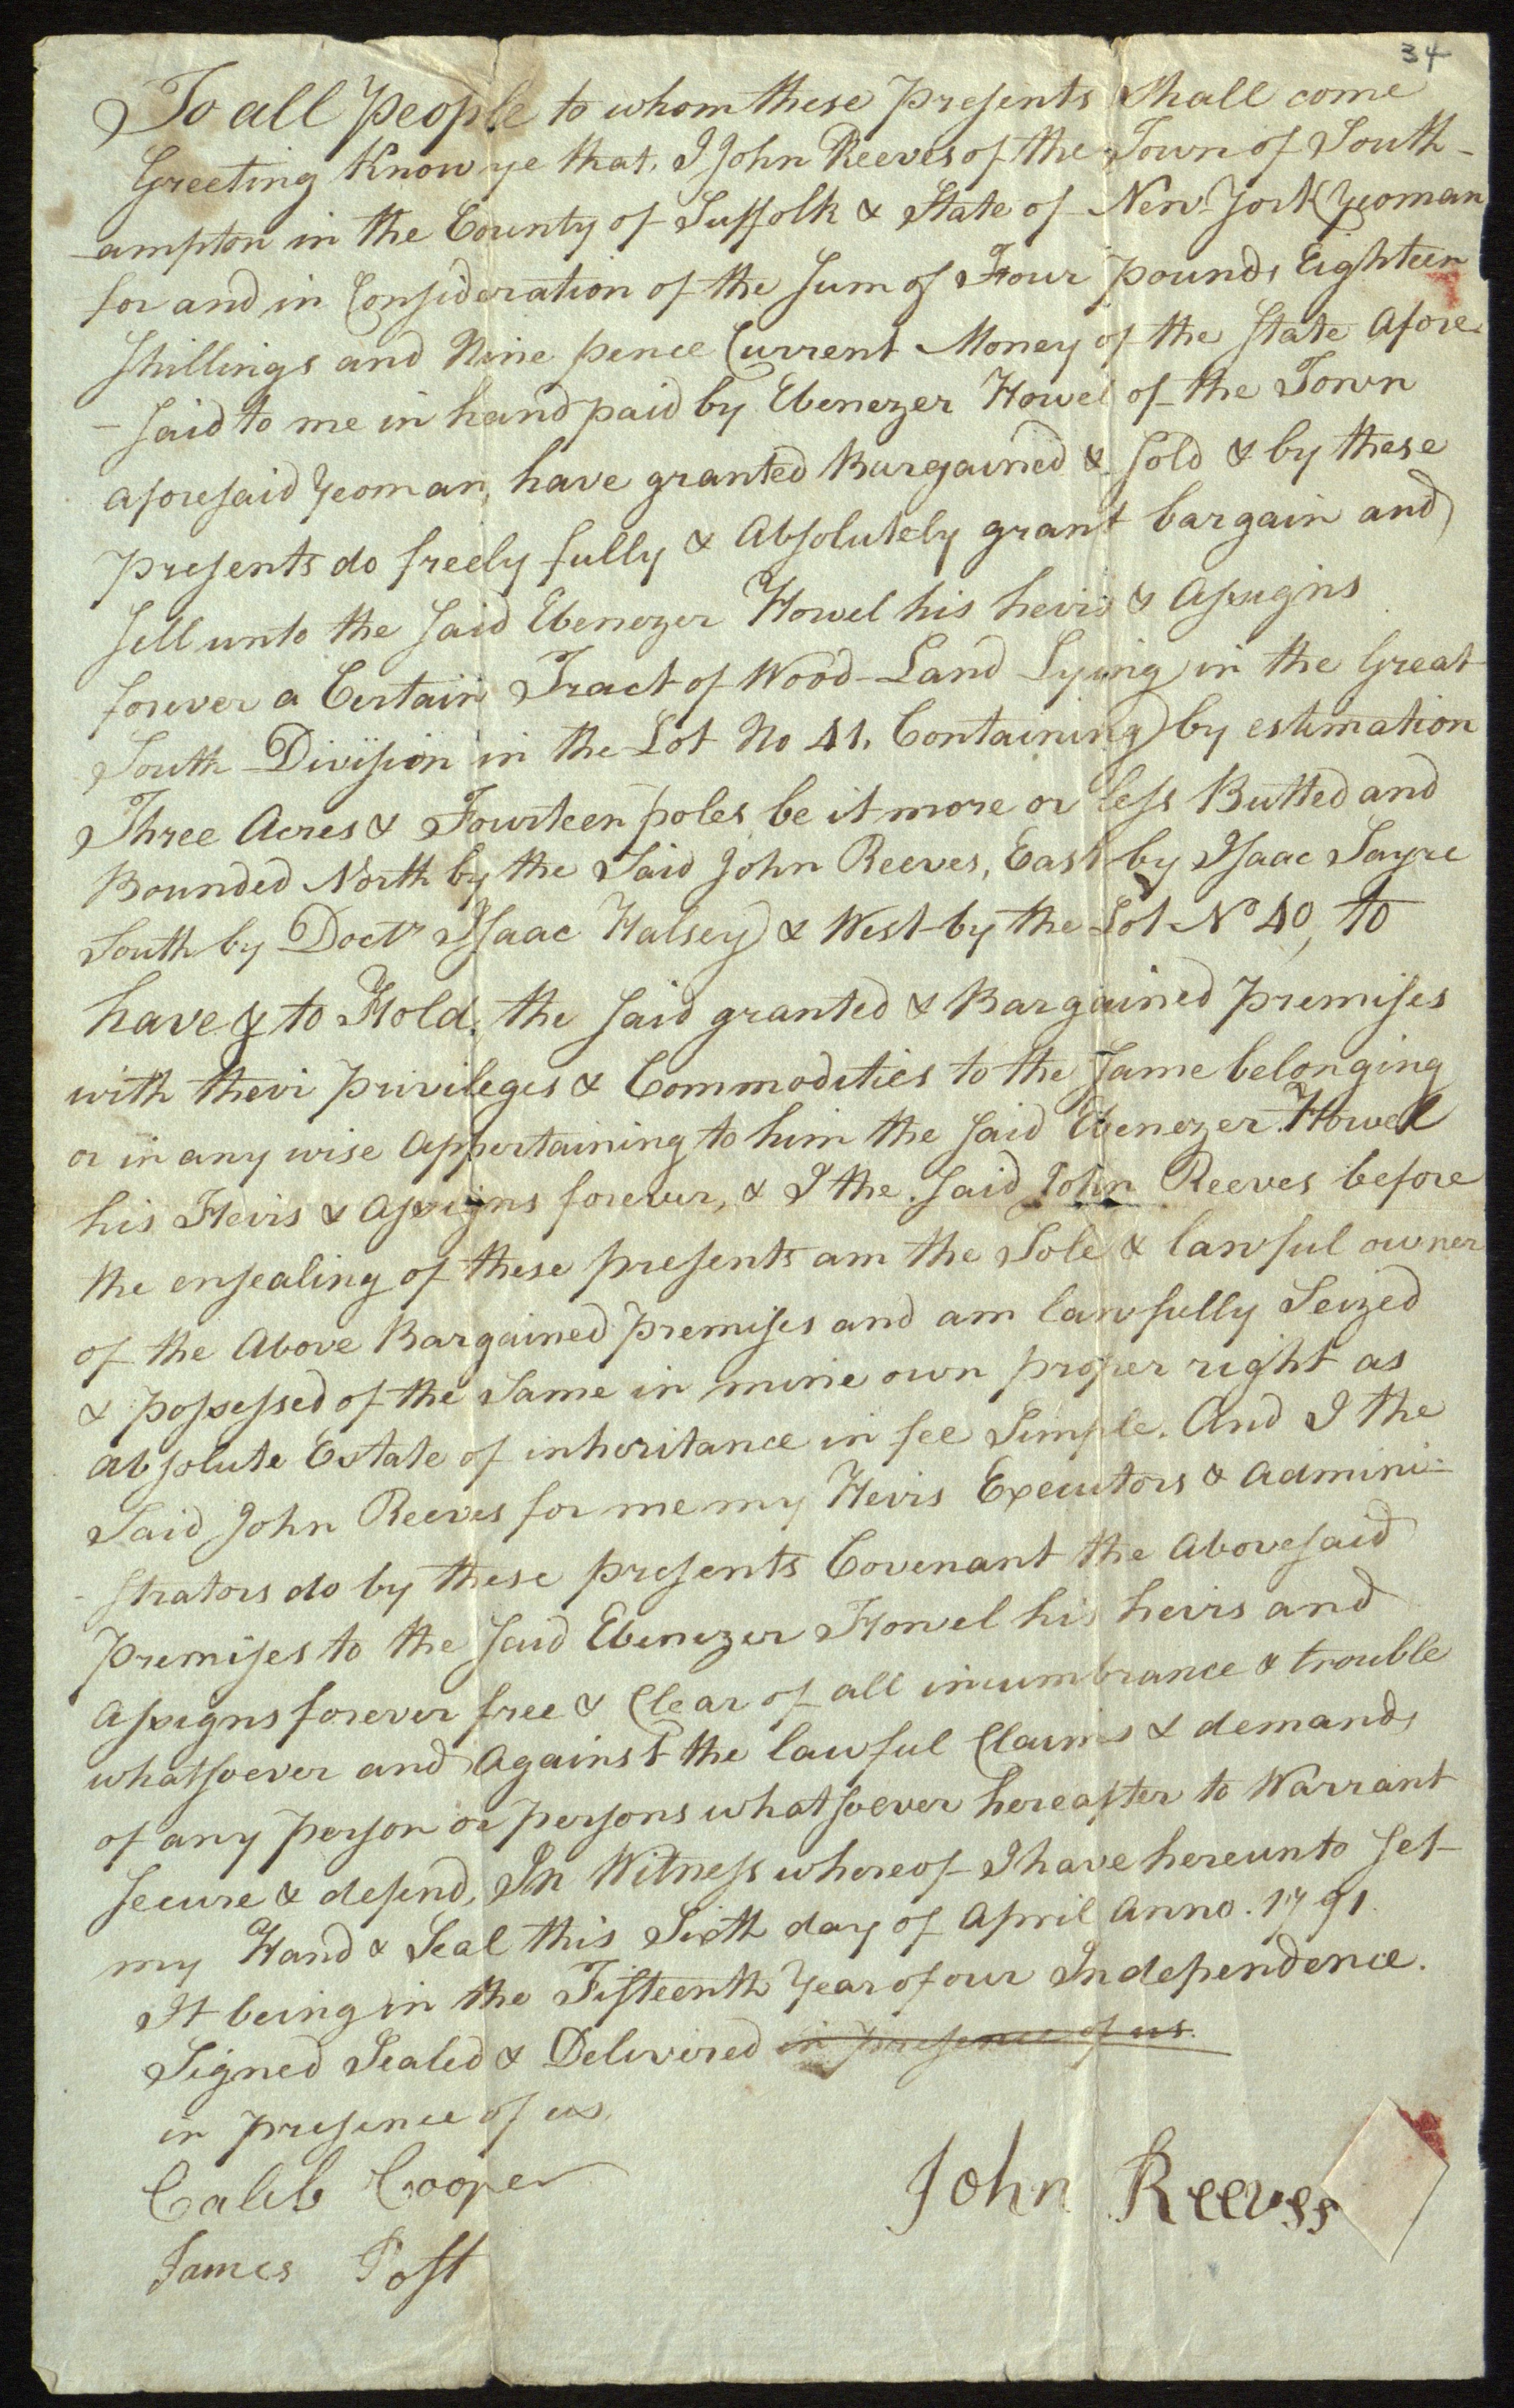 34
To all People to whom these Presents Shall come
Greeting Know ye that, I John Reeves of the Town of South-
-ampton in the County of Suffolk & State of New-York Yeoman
for and in Consideration of the Sum of Four pounds Eighteen
Shillings and Nine pence Current Money of the State Afore-
-said to me in hand paid by Ebenezer Howel of the Town
aforesaid Yeoman, have granted Bargained & Sold & by these
presents do freely fully & Absolutely grant bargain and
Sell unto the Said Ebenezer Howel his heirs & Assigns
forever a Certain Tract of Wood-Land Lying in the Great
South Division in the Lot No 41. Containing by estimation
Three Acres & Fourteen poles be it more or less Butted and
Bounded North by the Said John Reeves, East by Isaac Sayre
South by Doctr Isaac Halsey & West by the Lot No 40, to
have & to Hold. the Said granted & Bargained premises
with their privileges & Commodities to the Same belonging
or in any wise Appertaining to him the Said Ebenezer Howel
his Heirs & Assigns forever, & I the Said John Reeves before
the ensealing of these presents am the Sole & lawful owner
of the Above Bargained premises and am lawfully Seized
& possessed of the Same in mine own proper right as
absolute Estate of inheritance in fee Simple. And I the
Said John Reeves for me my Heirs Executors & Admini-
-strators do by these presents Covenant the Abovesaid
premises to the Said Ebenezer Howel his heirs and
Assigns forever free & Clear of all incumbrance & trouble
whatsoever and Against the lawful Claims & demands
of any person or persons whatsoever hereafter to Warrant
Secure & defend, In Witness whereof I have hereunto Set
my Hand & Seal this Sixth day of April Anno. 1791.
It being in the Fifteenth Year of our Independence.
Signed Sealed & Delivered in presence of us.
in presence of us,
Caleb Cooper
John Reeves
James Post